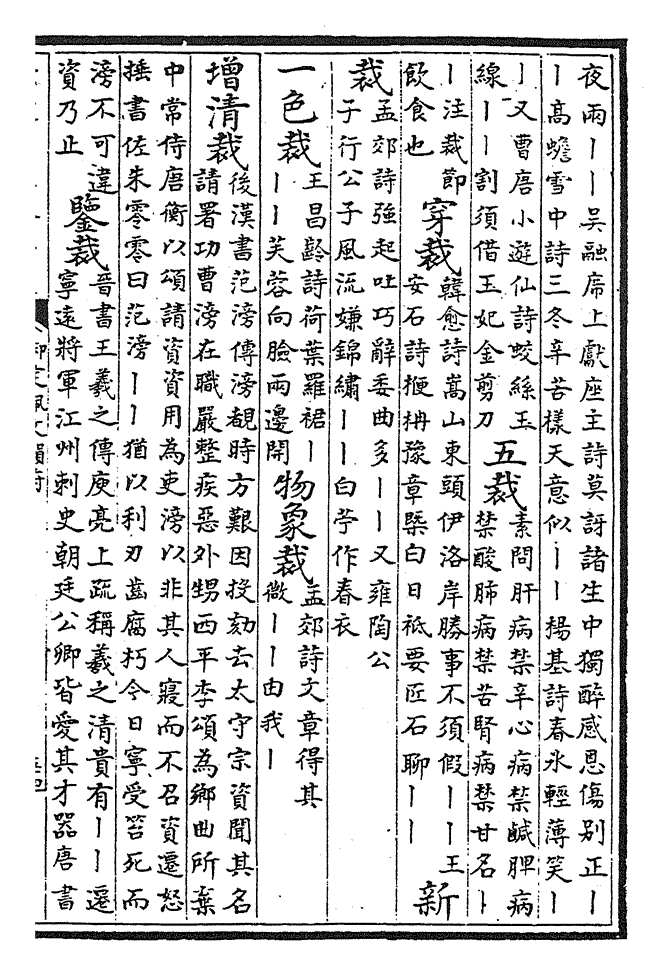 夜雨丨丨吳融席上獻座主詩莫訝諸生中獨醉感恩傷別正丨
丨高蟾雪中詩三冬辛苦樣天意似丨丨楊基詩春氷輕薄笑丨
丨又曹唐小遊仙詩蛟絲玉
線丨丨割須借玉妃金剪刀
五裁
素問肝病禁辛心病禁鹹脾病
禁酸肺病禁苦腎病禁甘名丨
丨注裁節
飲食也
穿裁
韓愈詩嵩山東頭伊洛岸勝事不須假丨丨王
安石詩楩柟豫章槩白日祗要匠石聊丨丨
新
裁
孟郊詩強起吐巧辭委曲多丨丨又雍陶公
子行公子風流嫌錦繡丨丨白苧作春衣
一色裁
王昌齡詩荷葉羅裙丨
丨丨芙蓉向臉兩邊開
物象裁
孟郊詩文章得其
微丨丨由我丨
增清裁
後漢書范滂傳滂覩時方艱因投劾去太守宗資聞其名
請署功曹滂在職嚴整疾惡外甥西平李頌為鄉曲所棄
中常侍唐衡以頌請資資用為吏滂以非其人寢而不召資遷怒
捶書佐朱零零曰范滂丨丨猶以利刃齒腐朽今日寧受笞死而
滂不可違
資乃止
鑒裁
晉書王羲之傳庾亮上疏稱羲之清貴有丨丨遷
寧遠將軍江州刺史朝廷公卿皆愛其才器唐書